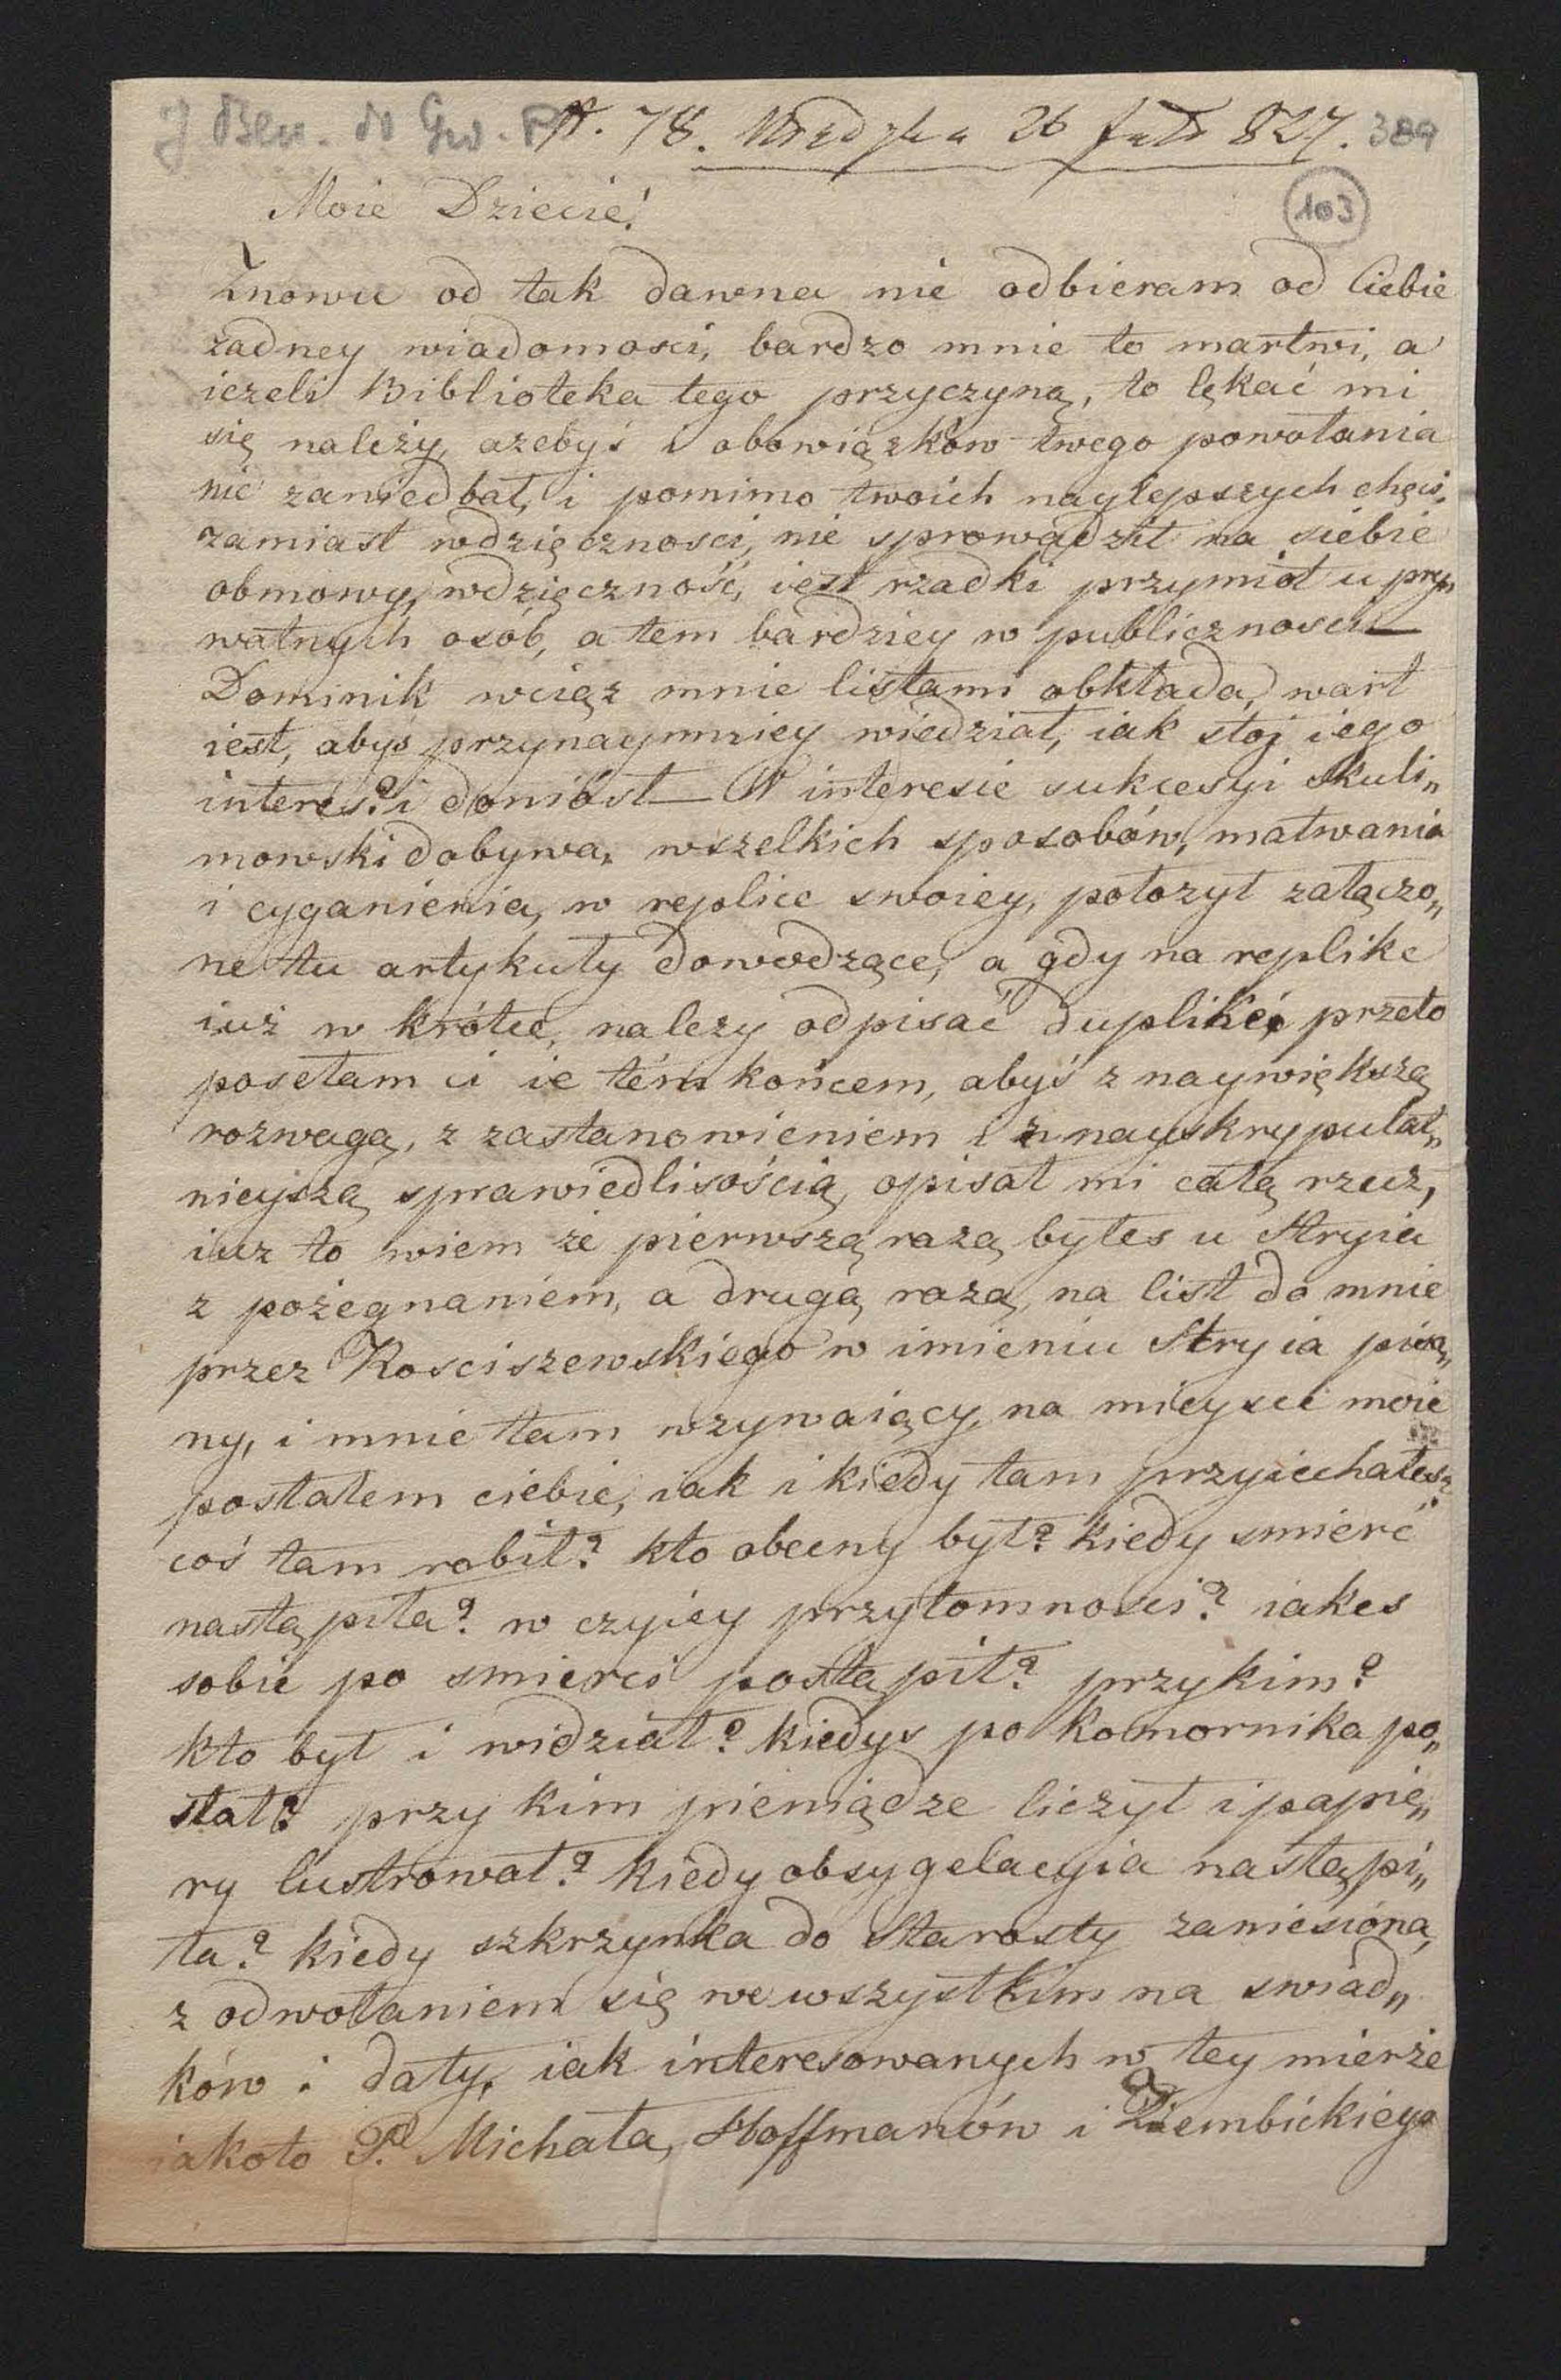 J Ben. do Gw. P. N. 78. Medyka 26 Julii 827. 389
103
Moie Dziecie!
Znowu od tak dawna nie odbieram od Ciebie
żadney wiadomosci, bardzo mnie to martwi, a
ieżeli Biblioteka tego przyczyną, to lękać mi
się należy, ażebyś i obowiązków twego powołania
nie zaniedbał, i pomimo twoich naylepszych chęci,
zamiast wdzięcznosci, nie sprowadził na siebie
obmowy, wdzięczność, iest rzadki przymiot u pry„
watnych osób, a tem bardziey w publicznosci—
Dominik wciąż mnie listami obkłada, wart
iest, abyś przynaymniey wiedział, iak stoj iego
interes? i doniósł— W interesie sukcesyi Skuli„
mowski dobywa, wszelkich sposobów, matwania
i cyganienia, w replice swoiey, położył załączo„
ne tu artykuły dowodzące, a gdy na replike
iuż w krótce, nalezy odpisać duplike, przeto
posełam ci ie tém końcem, abyś z naywiększą
rozwagą, z zastanowieniem i z nayskrypulat„
nieyszą sprawiedlisością, opisał mi całą rzecz,
iuz to wiem że pierwszą razą byłes u Stryia
z pożegnaniem, a drugą razą, na list do mnie
przez Kosciszewskiego w imieniu Stryia pisa„
ny, i mnie tam wzywaiący, na mieysce moie
posłałem ciebie, iak i kiedy tam przyiechałes?
coś tam robił? kto obecny był? kiedy smierć
nastąpiła? w czyiey przytomnosci? iakes
sobie po smierci postąpił? przykim?
kto był i widział? kiedys po Komornika po„
słał? przy kim pieniądze liczył i papie„
ry lustrował? kiedy obsygelacyia nastąpi„
ła? kiedy szkrzynka do Starosty zaniesióna,
z odwołaniem się we wszystkim na swiad„
ków i daty, iak interesowanych w tey mierże
iakoto P. Michała, Hoffmanów i Ziembickiego